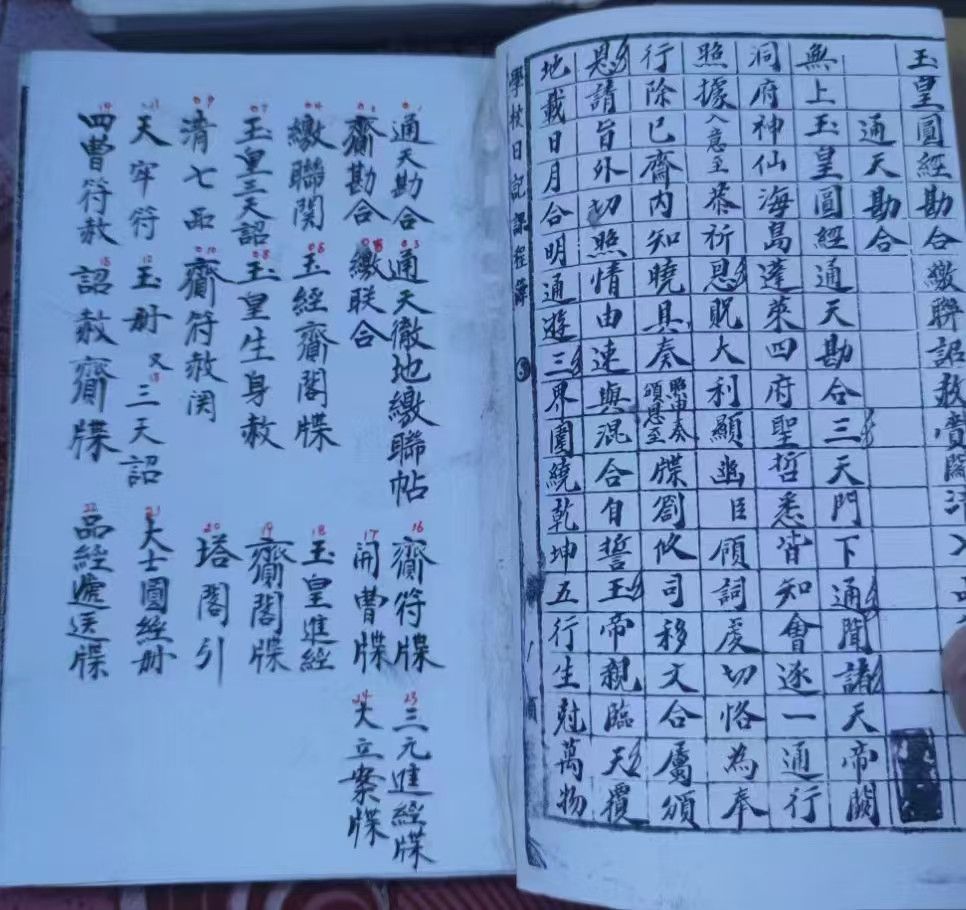 玉皇圓經勘合繳聯詔赦
通天勘合
無上玉皇圓經通天勘合三天門下通聞諸天帝闕
洞府神仙海島蓬萊四府聖哲悉皆知會逐一通行
照據入意至恭祈恩貺大利顯幽臣領詞虔切恪為奉
行除已齋內知曉具奏照申奏頒恩至牒劄攸司移文合屬頒
恩請旨外切照情由速與混合自誓玉帝親臨天
地載日月合明通遊三界圍繞乾坤五行生尅萬物
學校日記課程簿
01 通天勘合
03 通天徹地繳聯帖
02 齋勘合
繳联合
04 繳聯関
06 玉經齋閣牒
07 玉皇三天詔
08 玉皇生身赦
09 清七品
010 齋符赦関
11 天牢符
12 玉册
又
13 三天詔
14 四曹符赦
15 詔赦齋牒
16 齋符牒
17 開曹牒
18 玉皇進經
19 齋閣牒
20 塔閣引
21 大士圓經册
22 品經遞送牒
23 三元進經牒
24 大立案牒